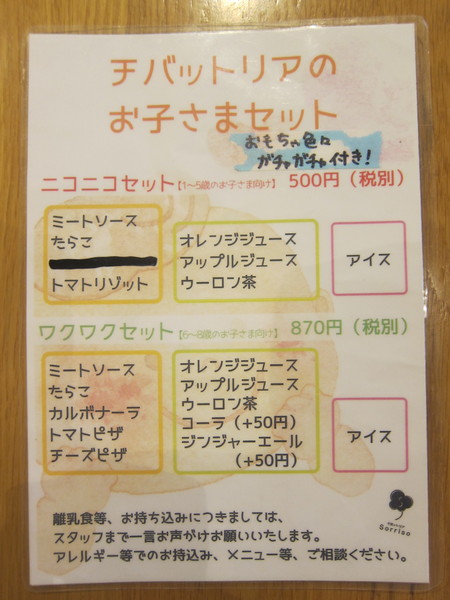 チバットリアの
お子さまセット
おもちゃ色々
ガチャガチャ付き!
ニコニコセット【1〜5歳のお子さま向け】 500円(税別)
ミートソース
たらこ
トマトリゾット
オレンジジュース
アップルジュース
ウーロン茶
アイス
ワクワクセット【6〜8歳のお子さま向け】 870円(税別)
ミートソース
たらこ
カルボナーラ
トマトピザ
チーズピザ
オレンジジュース
アップルジュース
ウーロン茶
コーラ(+50円)
ジンジャーエール
(+50円)
アイス
離乳食等、お持ち込みにつきましては、
スタッフまで一言お声がけお願いいたします。
アレルギー等でのお持込み、メニュー等、ご相談ください。
Sorriso